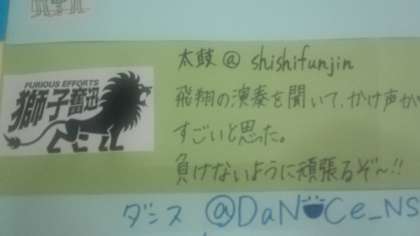 FURIOUS EFFORTS
獅子奮迅
太鼓 @ shishifunjin
飛翔の演奏を聞いて、かけ声が
すごいと思った。
負けないように頑張るぞ〜!!
ダンス @DaNCe_NS